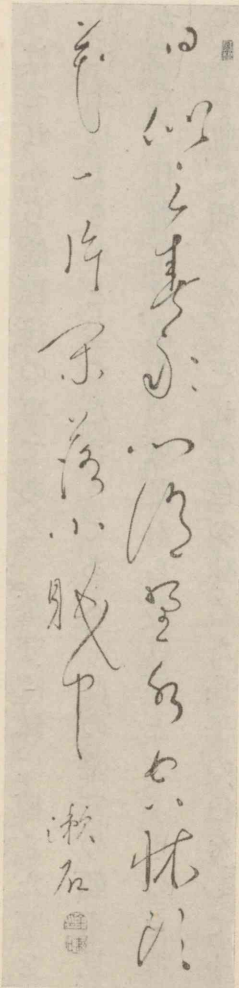 日似三春永心随野水空牀頭
花一片閑落小眠中
漱石